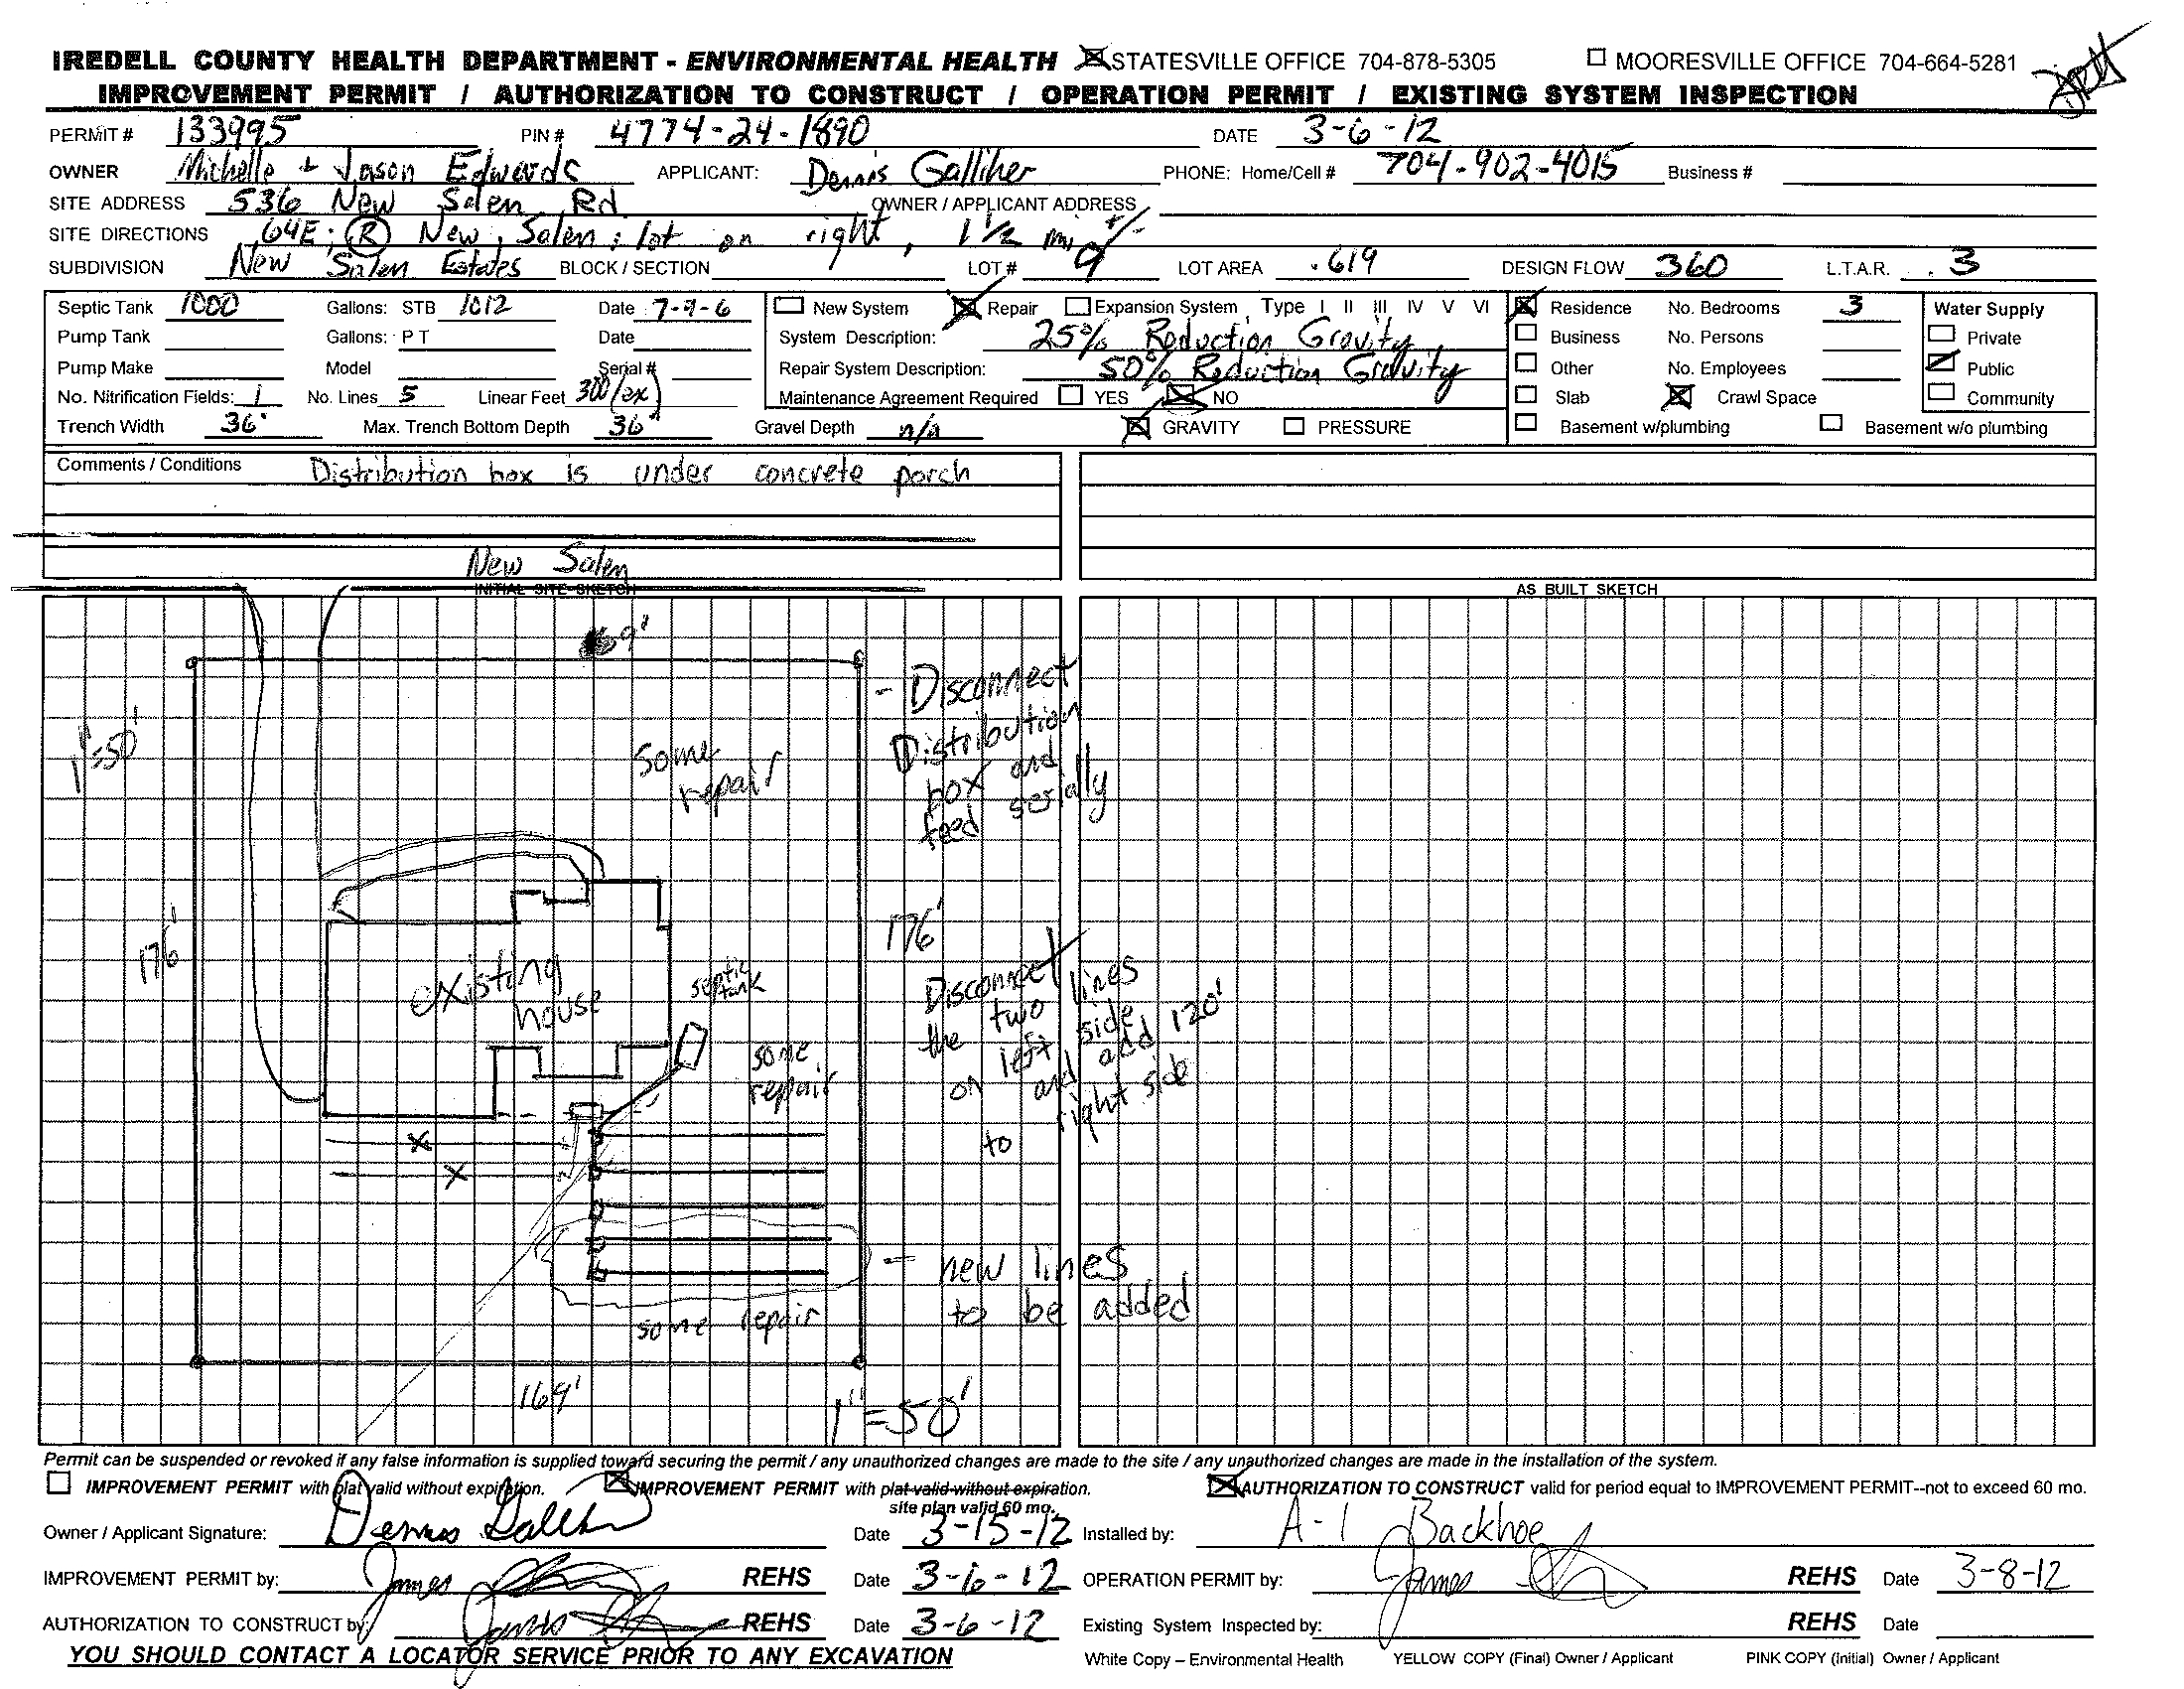 IREDELL COUNTY HEALTH DEPARTMENT - ENVIRONMENTAL HEALTH STATESVILLE OFFICE 704-878-5305 MOORESVILLE OFFICE 704-664-5281
IMPROVEMENT PERMIT / AUTHORIZATION TO CONSTRUCT / OPERATION PERMIT / EXISTING SYSTEM INSPECTION
PERMIT # 133995 PIN # 4774-24-1890 DATE 3-6-12
OWNER Michelle + Jason Edwards APPLICANT: Dennis Galliher PHONE: Home/Cell # 704-902-4015 Business #
SITE ADDRESS 536 New Salem Rd. OWNER / APPLICANT ADDRESS
SITE DIRECTIONS 64E; (R) New Salem; lot on right, 1 1/2 mi +/-
SUBDIVISION New Salem Estates BLOCK / SECTION LOT # 9 LOT AREA .619 DESIGN FLOW 360 L.T.A.R. .3
Septic Tank 1000 Gallons: STB 1012 Date 7-9-6 New System Repair Expansion System Type I II III IV V VI Residence No. Bedrooms 3 Water Supply
Pump Tank Gallons: PT Date System Description: 25% Reduction Gravity Business No. Persons Private
Pump Make Model Serial # Repair System Description: 50% Reduction Gravity Other No. Employees Public
No. Nitrification Fields: 1 No. Lines 5 Linear Feet 300 (ex) Maintenance Agreement Required YES NO Slab Crawl Space Community
Trench Width 36" Max. Trench Bottom Depth 36" Gravel Depth n/a GRAVITY PRESSURE Basement w/plumbing Basement w/o plumbing
Comments / Conditions Distribution box is under concrete porch
New Salem
INITIAL SITE SKETCH AS BUILT SKETCH
69'
- Disconnect
Distribution
box and
feed serially
1"=50'
Some
repair
176'
176'
existing
house
septic
tank
Disconnect
the two lines
on left side
and add 120'
to right side
some
repair
X
X
= new lines
to be added
some repair
169'
1"=50'
Permit can be suspended or revoked if any false information is supplied toward securing the permit / any unauthorized changes are made to the site / any unauthorized changes are made in the installation of the system.
IMPROVEMENT PERMIT with plat valid without expiration. IMPROVEMENT PERMIT with plat valid without expiration. AUTHORIZATION TO CONSTRUCT valid for period equal to IMPROVEMENT PERMIT--not to exceed 60 mo.
site plan valid 60 mo.
Owner / Applicant Signature: Dennis Galliher Date 3-15-12 Installed by: A-1 Backhoe
IMPROVEMENT PERMIT by: James REHS Date 3-6-12 OPERATION PERMIT by: James REHS Date 3-8-12
AUTHORIZATION TO CONSTRUCT by: James REHS Date 3-6-12 Existing System Inspected by: REHS Date
YOU SHOULD CONTACT A LOCATOR SERVICE PRIOR TO ANY EXCAVATION White Copy – Environmental Health YELLOW COPY (Final) Owner / Applicant PINK COPY (Initial) Owner / Applicant